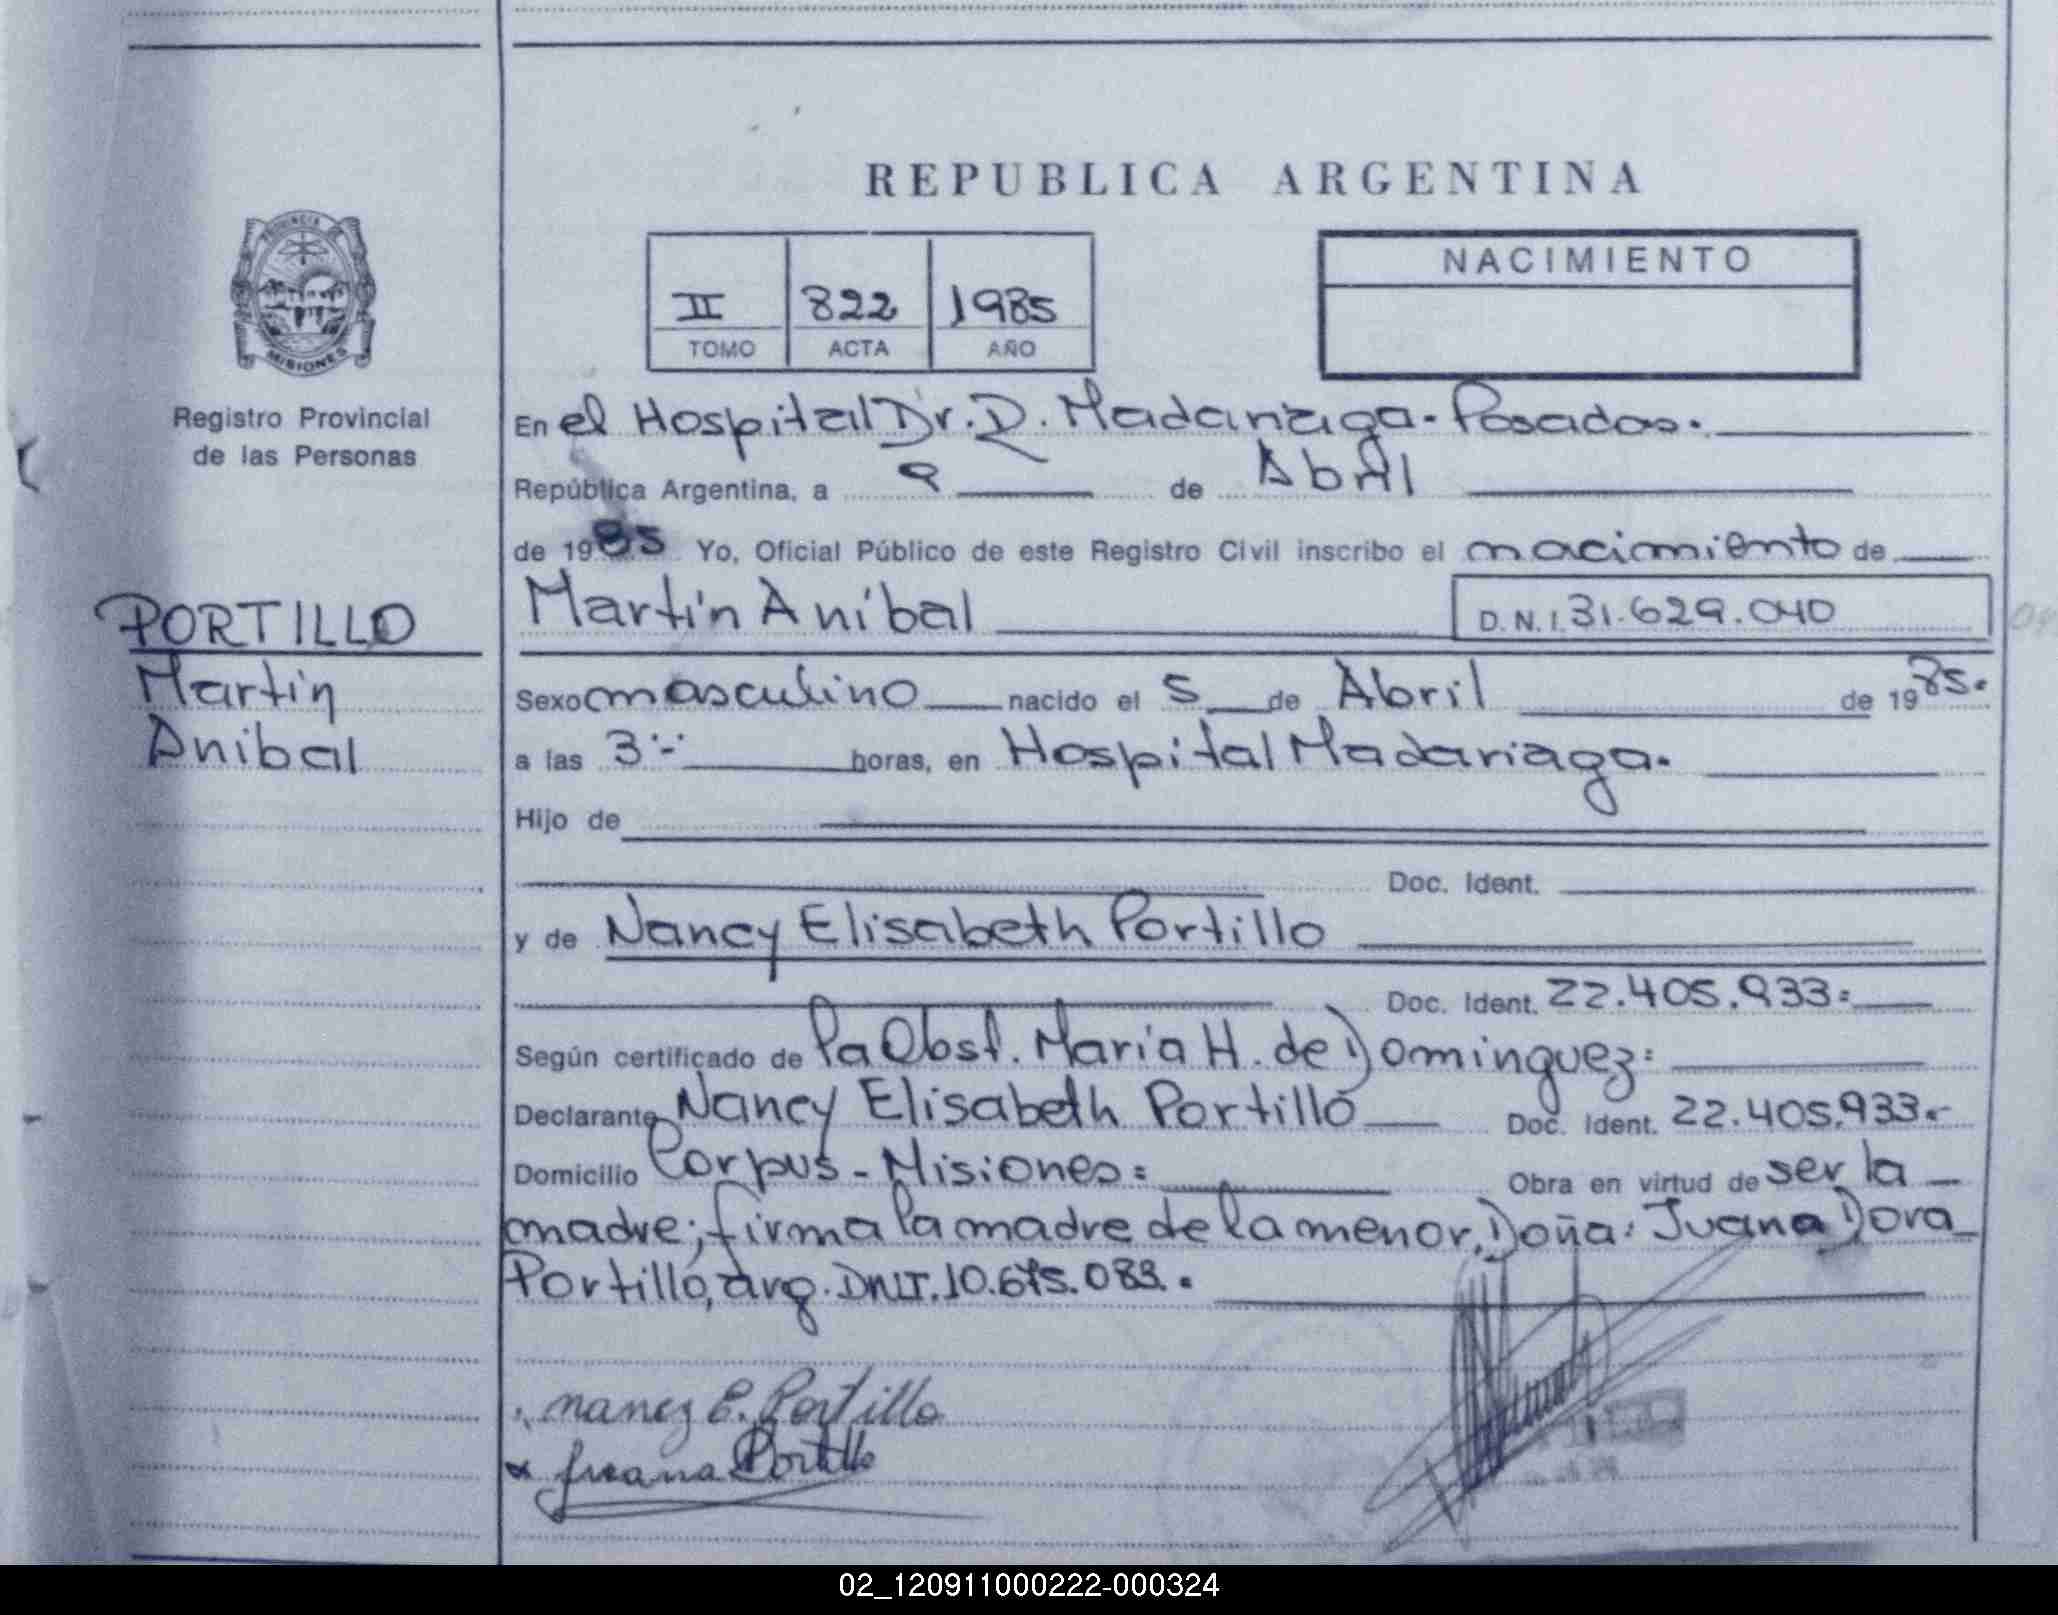 REPUBLICA ARGENTINA
PROVINCIA
MISIONES
Registro Provincial
de las Personas
II 822 1985
TOMO ACTA AÑO
NACIMIENTO
En el Hospital Dr. R. Madariaga - Posadas.
República Argentina, a 9 de Abril
de 1985 Yo, Oficial Público de este Registro Civil inscribo el nacimiento de
PORTILLO
Martín
Anibal
Martín Aníbal D.N.I. 31.629.040
Sexo masculino nacido el 5 de Abril de 1985.
a las 3 horas, en Hospital Madariaga.
Hijo de
Doc. Ident.
y de Nancy Elisabeth Portillo
Doc. Ident. 22.405.933=
Según certificado de Pa Obst. María H. de Dominguez=
Declarante Nancy Elisabeth Portillo Doc. Ident. 22.405.933.-
Domicilio Corpus - Misiones= Obra en virtud de ser la
madre; firma la madre de la menor, Doña: Juana Dora
Portillo, arg. DNI. 10.675.083.
Nancy E. Portillo
Juana Portillo
02_120911000222-000324